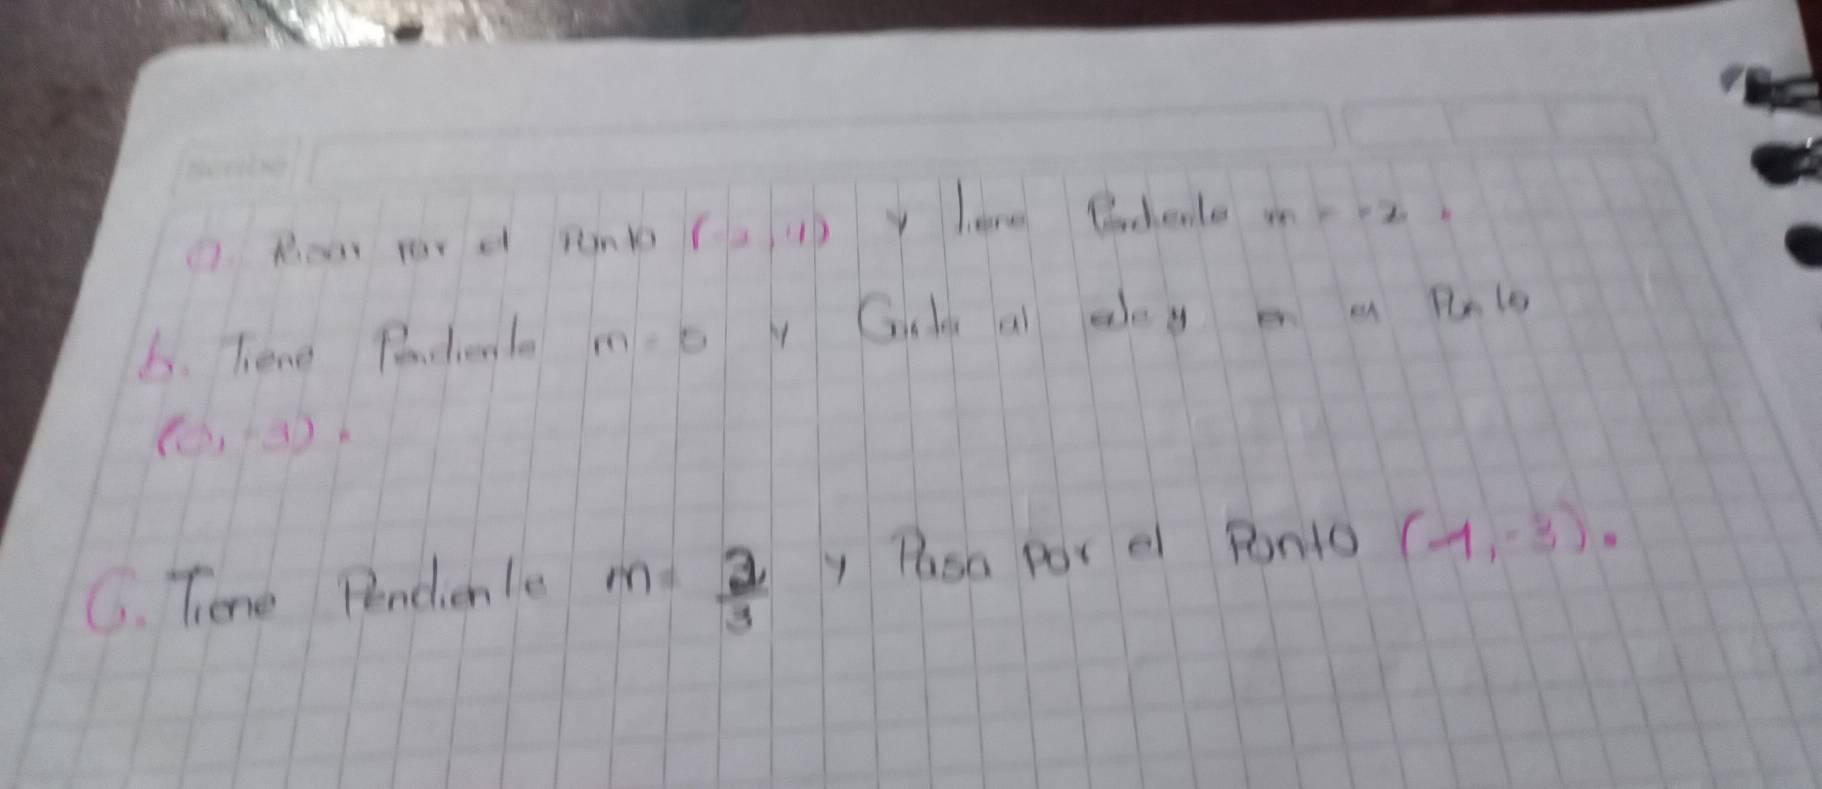 a. Pasa por el Punto (-2,4) y tiene Pendiente m = -2.
b. Tiene Pendiente m = 5 y Corta al eje y en el Punto
(0, -3).
C. Tiene Pendiente m = 2/3 y Pasa por el Ponto (-1, -3).